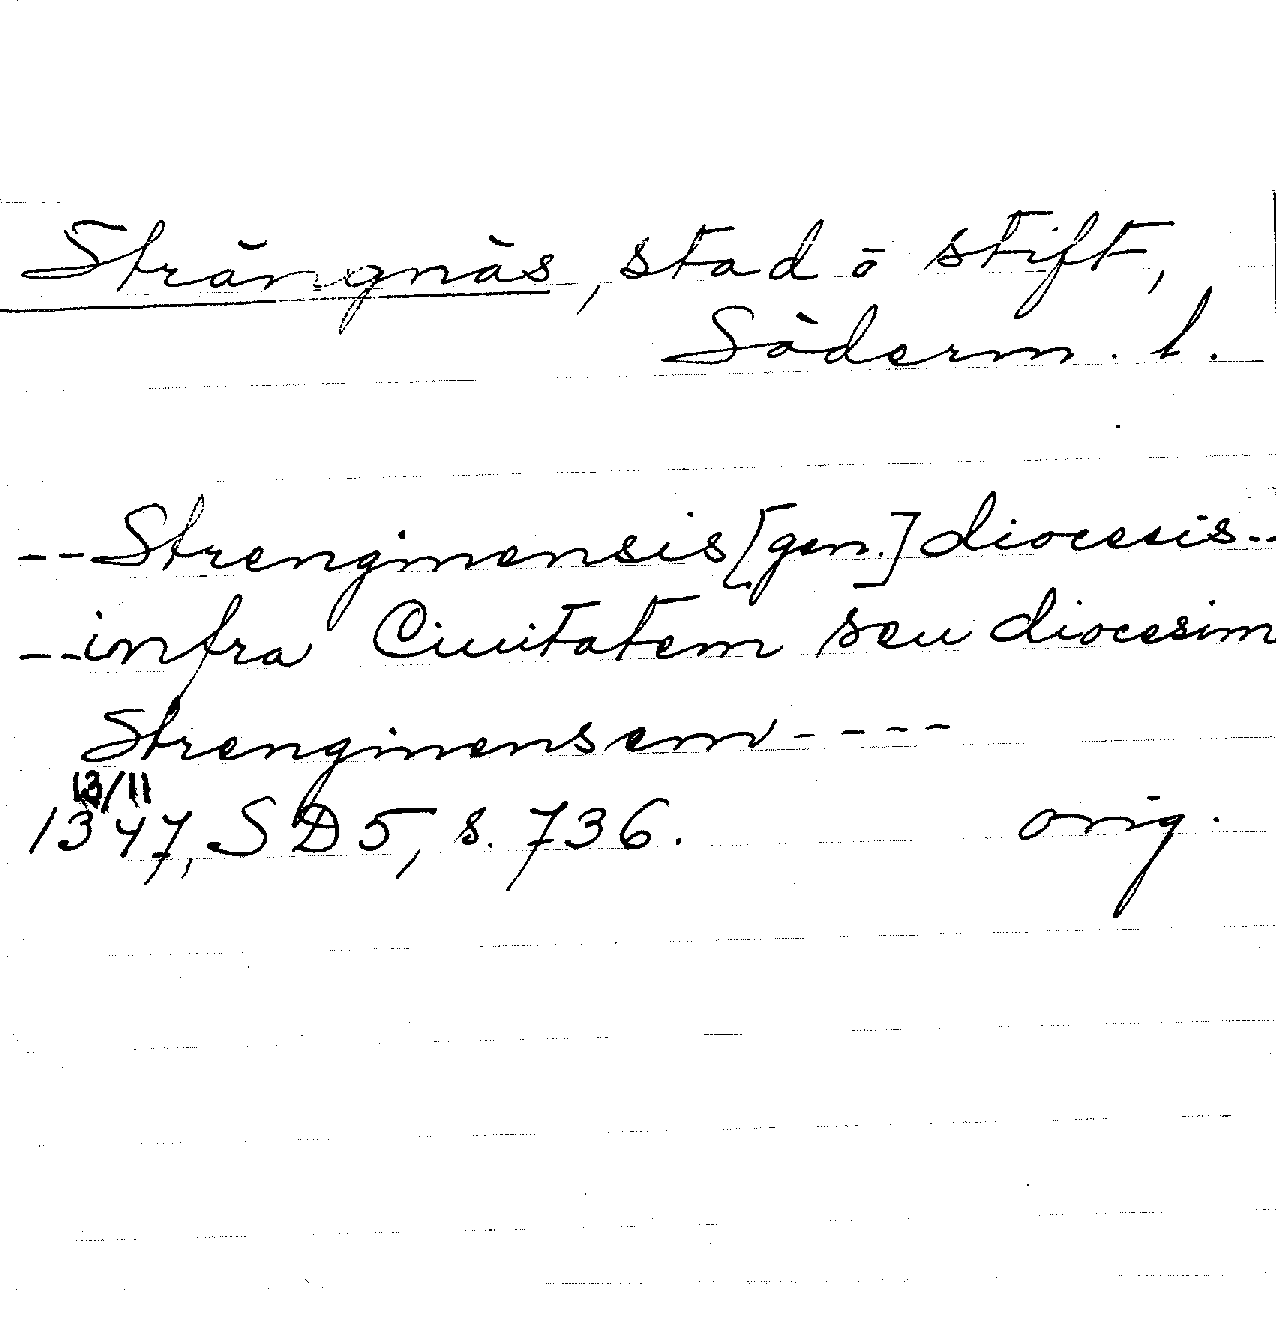 Strängnäs, stad o stift,
Söderm. l.
--Strenginensis [gen.] diocesis..
--infra Ciuitatem seu diocesim
Strenginensem----
13/11
1347, SD5, s. 736. orig.